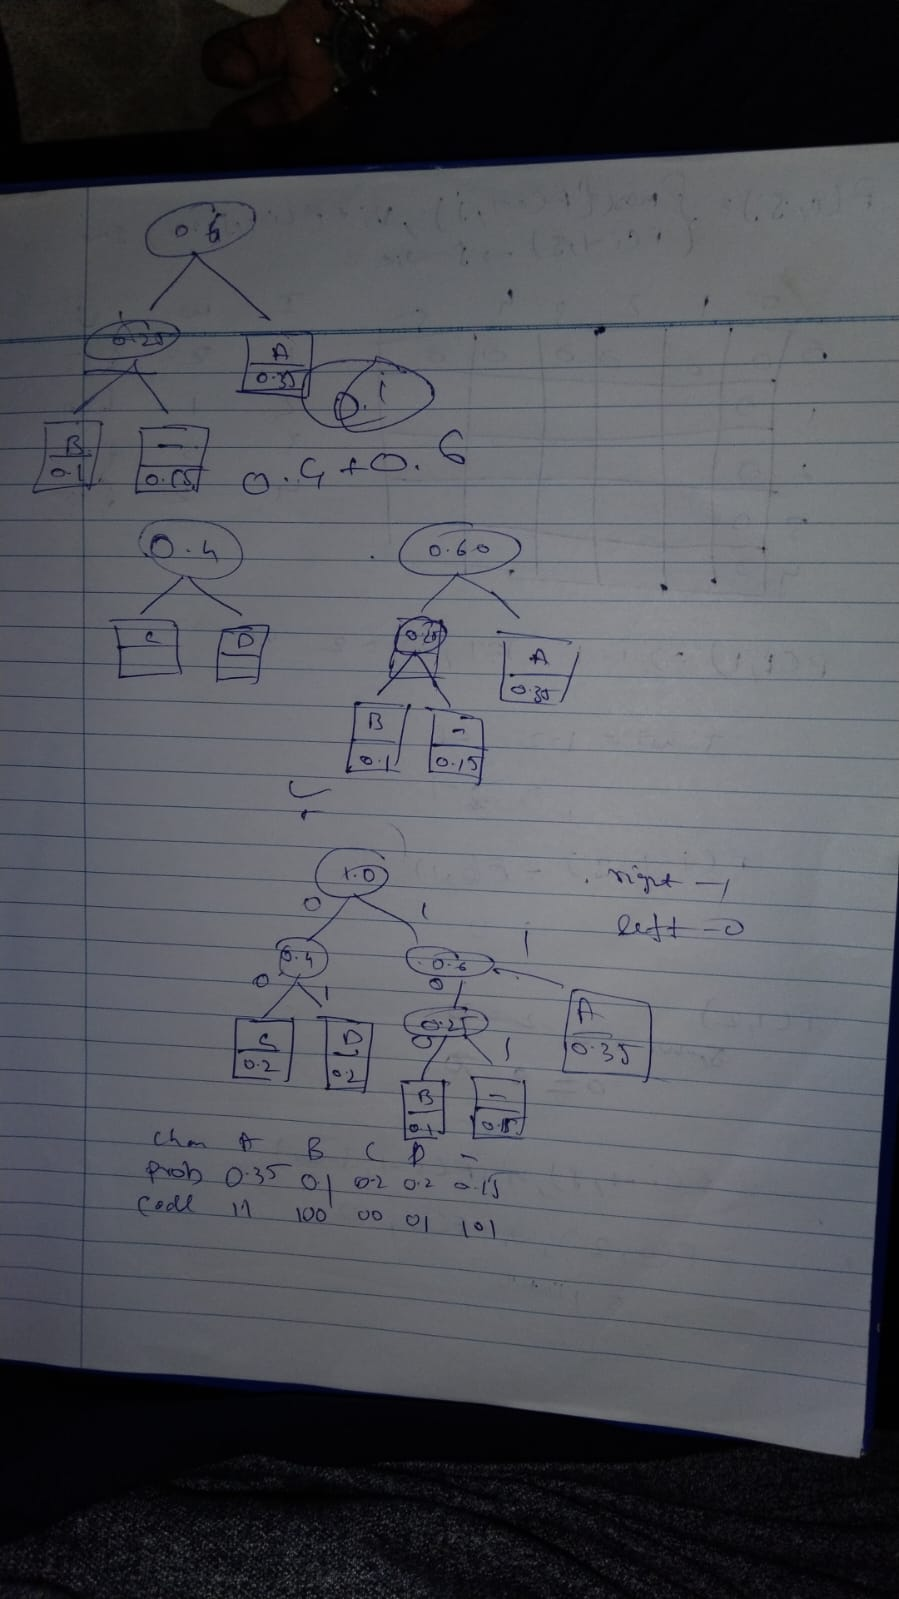 0.6
0.25
A
0.35
0.1
B
0.1
-
0.15
0.4 + 0.6
0.4
0.60
C
D
0.25
A
0.35
B
0.1
-
0.15
1.0
right - 1
0
1
left - 0
0.4
0.6
1
0
1
0
C
0.2
D
0.2
0.25
A
0.35
0
1
B
0.1
-
0.15
char A B C D -
prob 0.35 0.1 0.2 0.2 0.15
Code 11 100 00 01 101